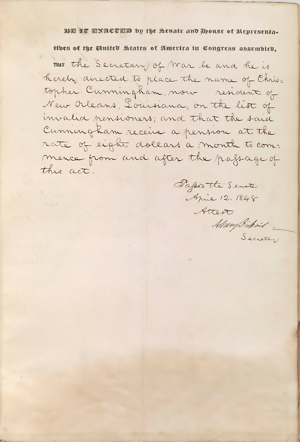 BE IT ENACTED by the Senate and House of Representa-
tives of the United States of America in Congress assembled,
THAT the Secretary of War be and he is
hereby directed to place the name of Chris-
topher Cunningham, now resident of
New Orleans, Louisiana, on the list of
invalid pensioners; and that the said
Cunningham receive a pension at the
rate of eight dollars a month to com-
mence from and after the passage of
this act.
Passed the Senate
April 12. 1848
Attest
Secretary